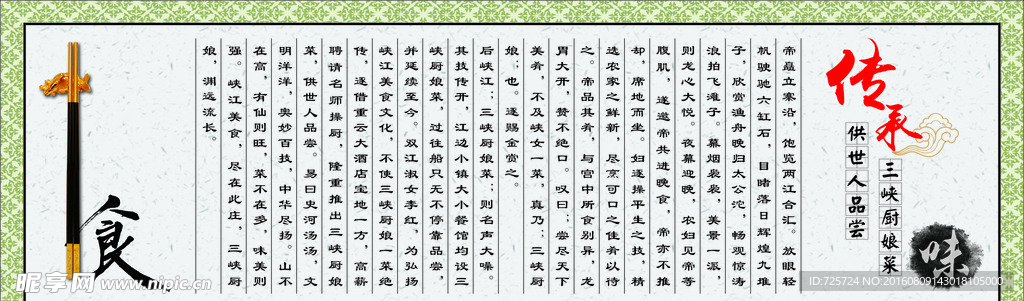 传承
三峡厨娘菜
供世人品尝
帝矗立寒沿，饱览两江合汇。放眼轻
帆驶驰六缸石，目睹落日辉煌九堆
子，欣赏渔舟晚归太公沱，畅观惊涛
浪拍飞滩子。幕烟袅袅，美景一派，
则龙心大悦。夜幕迎晚，农妇见帝等
腹肌，遂邀帝共进晚食，帝亦不推
却，席地而坐。妇逐操平生之技，精
选农家之鲜新，尽烹可口之佳肴以待
之。帝品其肴，与宫中所食别异，龙
胃大开，赞不绝口。叹曰；尝尽天下
美肴，不及峡女一菜，真乃；三峡厨
娘；也。逐赐金赏之。
后峡江；三峡厨娘菜；则名声大噪。
其技传开，江边小镇大小餐馆均设三
峡厨娘菜，过往船只无不停靠品尝，
并延续至今。双江淑女李红，为弘扬
峡江美食文化，不使三峡厨娘一菜绝
传，逐借重云大酒店宝地一方，高薪
聘请名师操厨，隆重推出三峡厨娘
菜，供世人品尝。易曰史河汤汤，文
明洋洋，奥妙百技，中华尽扬。山不
在高，有仙则旺，菜不在多，味美则
强。峡江美食，尽在此庄，三峡厨
娘，渊远流长。
食
味
昵享网 www.nipic.cn
ID:725724 NO:20160809143018105000